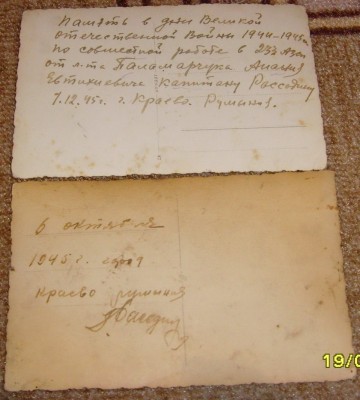 Память в дни Великой
отечественной Войны 1944-1945г
по совместной работе в 233 Азсп
от л-та Паламарчука Анания
Евтихиевича капитану Рассадину
7.12.45г. г. Краево. Румыния.
6 октября
1945 г.
краево румыния
19/0